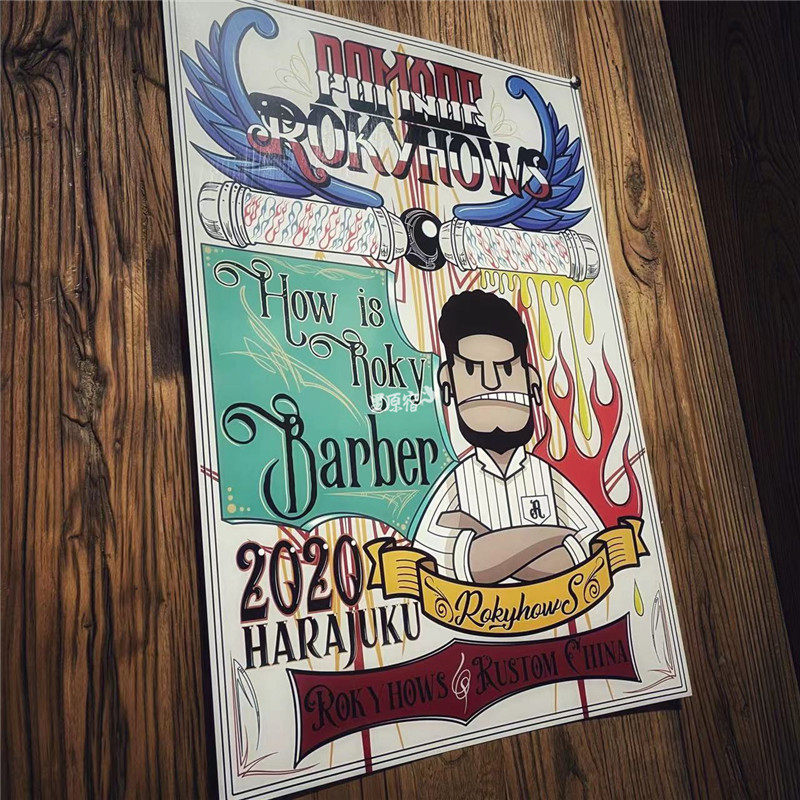 POMADE
ROKYHOWS
How is
Roky
原宿
Barber
R
2020
HARAJUKU
RokyhowS
ROKYHOWS & KUSTOM CHINA